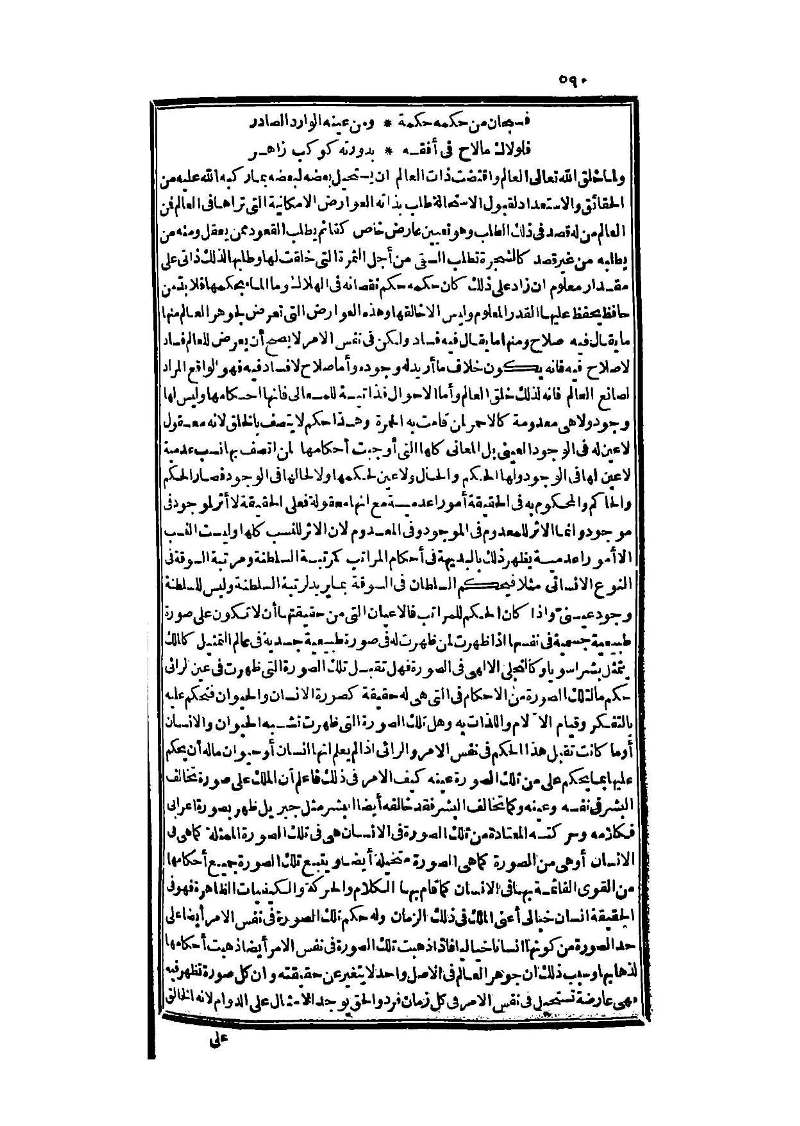 ٥٩٠
فسبحان من حكمه حكمة * ومن عينه الوارد الصادر
فلولاك مالاح فى أفقه * بدورته كوكب زاهر
ولما خلق الله تعالى العالم واقتضت ذات العالم ان يستحيل بعضه لبعضه بما ركبه الله عليه من
الحقائق والاستعداد لقبول الاستحالة طلب بذاته العوارض الامكانية التى تراها فى العالم فن
العالم من له قصد فى ذلك الطلب وهو تعيين عارض خاص كقائم يطلب القعود ممن يعقل ومنه من
يطلبه من غير قصد كالشجرة تطلب السقى من أجل الثمرة التى خلقت لها وطلبها لذلك ذاتى على
مقدار معلوم ان زاد على ذلك كان حكمه حكم نقصانه فى الهلاك وما الماء بحكمها فلا بد من
حافظ يحفظ عليها القدر المعلوم وليس الا خالقها وهذه العوارض التى تعرض لجوهر العالم منها
ما يقال فيه صلاح ومنها ما يقال فيه فساد ولكن فى نفس الامر لا يصح أن يعرض للعالم فساد
لاصلاح فيه فانه يكون خلاف ما أريد له وجوده وأما صلاح لا فساد فيه فهو الواقع المراد
لصانع العالم فانه لذلك خلق العالم وأما الاحوال فذاتية للمعانى فانها احكامها وليس لها
وجود ولا هى معدومة كالاحمر لمن قامت به الحمرة وهذا حكم لا يتصف بالخلق لانه معقول
لا عين له فى الوجود العينى بل المعانى كلها التى أوجبت أحكامها لمن اتصف بها نسب عدمية
لا عين لها فى الوجود ولها الحكم والحال ولا عين لحكمها ولا لحالها فى الوجود فصار الحكم
والحاكم والمحكوم به فى الحقيقة أمورا عدمية مع انها معقولة فعلى الحقيقة لا أثر لموجود فى
موجود وانما الاثر للمعدوم فى الموجود وفى المعدوم لان الاثر للنسب كلها وليست النسب
الا أمورا عدمية يظهر ذلك بالبديهة فى أحكام المراتب كمرتبة السلطنة ومرتبة السوقة فى
النوع الانسانى مثلا فيحكم السلطان فى السوقة بما يريد لرتبة السلطنة وليس للسلطنة
وجود عينى واذا كان الحكم للمراتب فالاعيان التى من حقيقتها أن لا تكون على صورة
طبيعية جسمية فى نفسها اذا ظهرت لمن ظهرت له فى صورة طبيعية جسدية فى عالم التمثيل كالملك
يتمثل بشرا سويا وكالتجلى الالهى فى الصورة فهل تقبل تلك الصورة التى ظهرت فى عين الرائى
حكم ما لتلك الصورة من الاحكام فى التى هى له حقيقة كصورة الانسان والحيوان فتحكم عليه
بالتفكر وقيام الآلام واللذات به وهل تلك الصورة التى ظهرت تشبه الحيوان والانسان
أو ما كانت تقبل هذا الحكم فى نفس الامر والرائى اذا لم يعلم انها انسان أو حيوان ماله أن يحكم
عليها بما يحكم على من تلك الصورة عينه كيف الامر فى ذلك فاعلم أن الملك على صورة تخالف
البشر فى نفسه وعينه وكما تخالف البشر فقد خالفه أيضا البشر مثل جبريل ظهر بصورة اعرابى
فكلامه وحركته المعتادة من تلك الصورة فى الانسان هى فى تلك الصورة الممثلة كما هى فى
الانسان أو هى من الصورة كما هى الصورة متخيلة أيضا ويتبع تلك الصورة جميع أحكامها
من القوى القائمة بها فى الانسان كما قام بها الكلام والحركة والكيفيات الظاهرة فهو فى
الحقيقة انسان خيالى أعنى الملك فى ذلك الزمان وله حكم تلك الصورة فى نفس الامر أيضا على
حد الصورة من كونها انسانا خياليا فاذا ذهبت تلك الصورة فى نفس الامر أيضا ذهبت أحكامها
لذهابها وسبب ذلك ان جوهر العالم فى الاصل واحد لا يتغير عن حقيقته وان كل صورة تظهر فيه
فهى عارضة تستحيل فى نفس الامر فى كل زمان فرد والحق يوجد الامثال على الدوام لانه الخالق
على